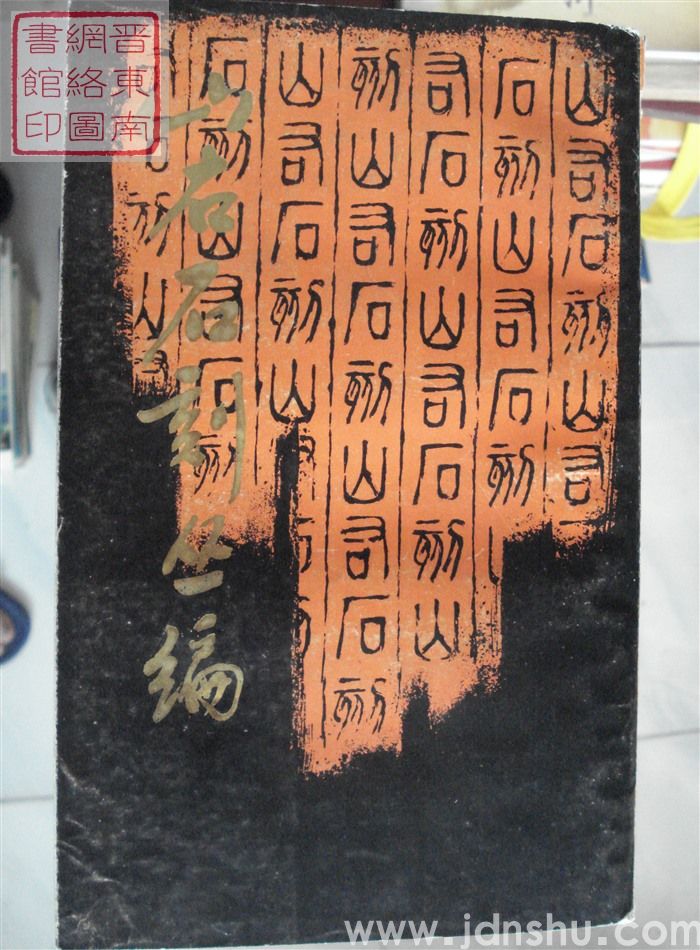 晋東南
網絡圖
書館印
山右石刻丛编
山右石刻山右
石刻山右石刻
右石刻山右石刻山
刻山右石刻山右石刻
山右石刻山
石刻山右石刻
石刻山
www.jdnshu.com